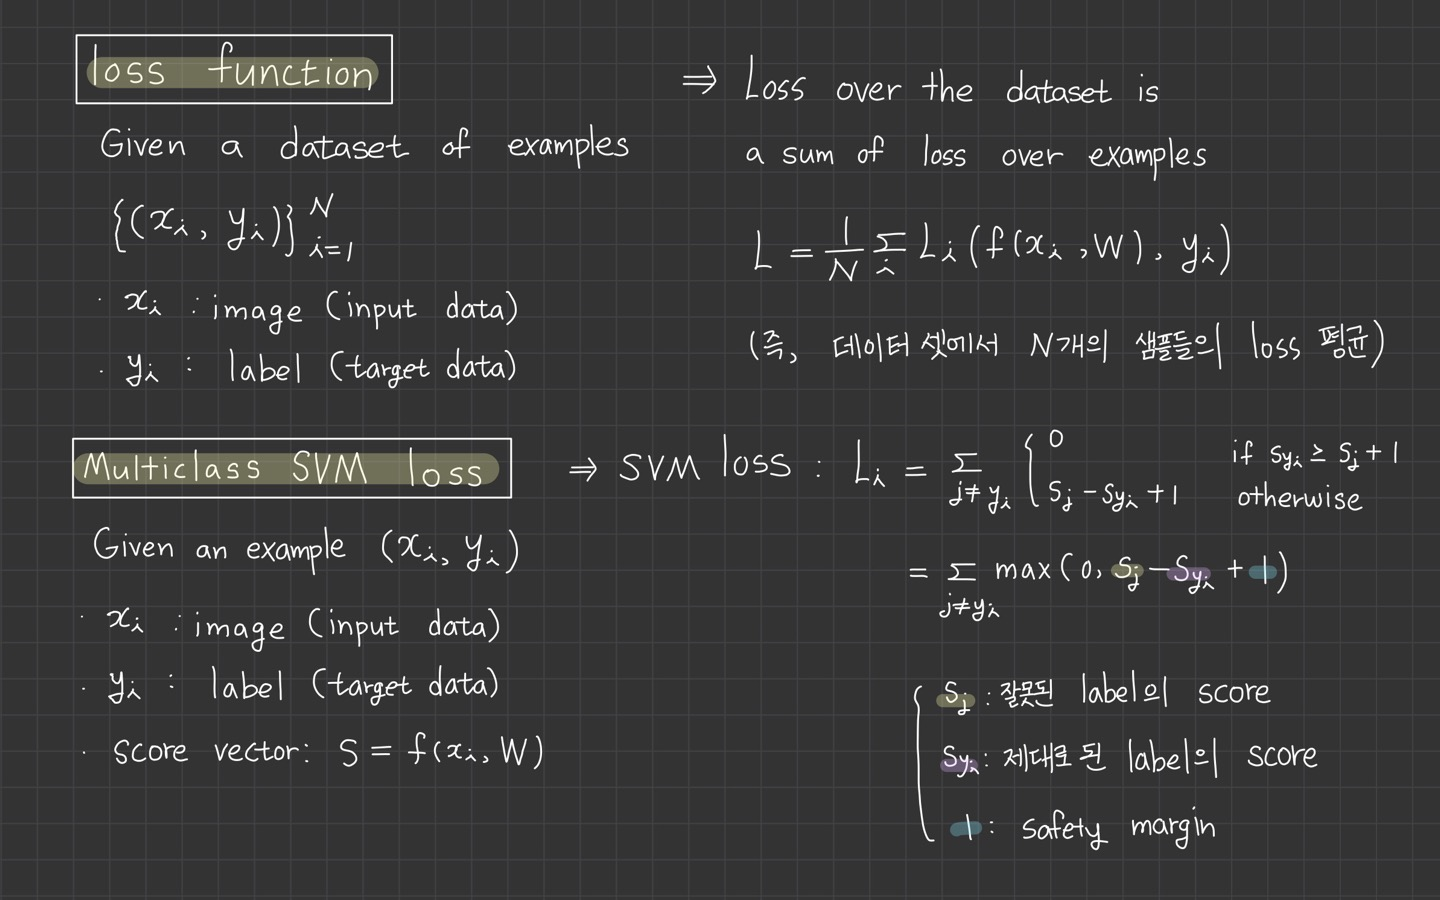 loss function
Given a dataset of examples
{(xᵢ, yᵢ)}ᴺᵢ₌₁
· xᵢ : image (input data)
· yᵢ : label (target data)
⇒ Loss over the dataset is
a sum of loss over examples
L = 1/N Σᵢ Lᵢ(f(xᵢ, W), yᵢ)
(즉, 데이터 셋에서 N개의 샘플들의 loss 평균)
Multiclass SVM loss
Given an example (xᵢ, yᵢ)
· xᵢ : image (input data)
· yᵢ : label (target data)
· score vector: S = f(xᵢ, W)
⇒ SVM loss : Lᵢ = Σ_{j≠yᵢ} { 0 if S_{yᵢ} ≥ S_j + 1
S_j - S_{yᵢ} + 1 otherwise
= Σ_{j≠yᵢ} max(0, S_j - S_{yᵢ} + 1)
S_j : 잘못된 label의 score
S_{yᵢ} : 제대로 된 label의 score
1 : safety margin